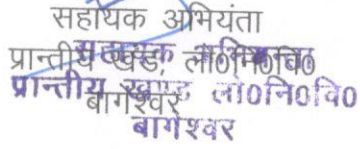 सहायक अभियंता
प्रान्तीय खण्ड, लो०नि०वि०
बागेश्वर
सहायक अभियन्ता
प्रान्तीय खण्ड लो०नि०वि०
बागेश्वर